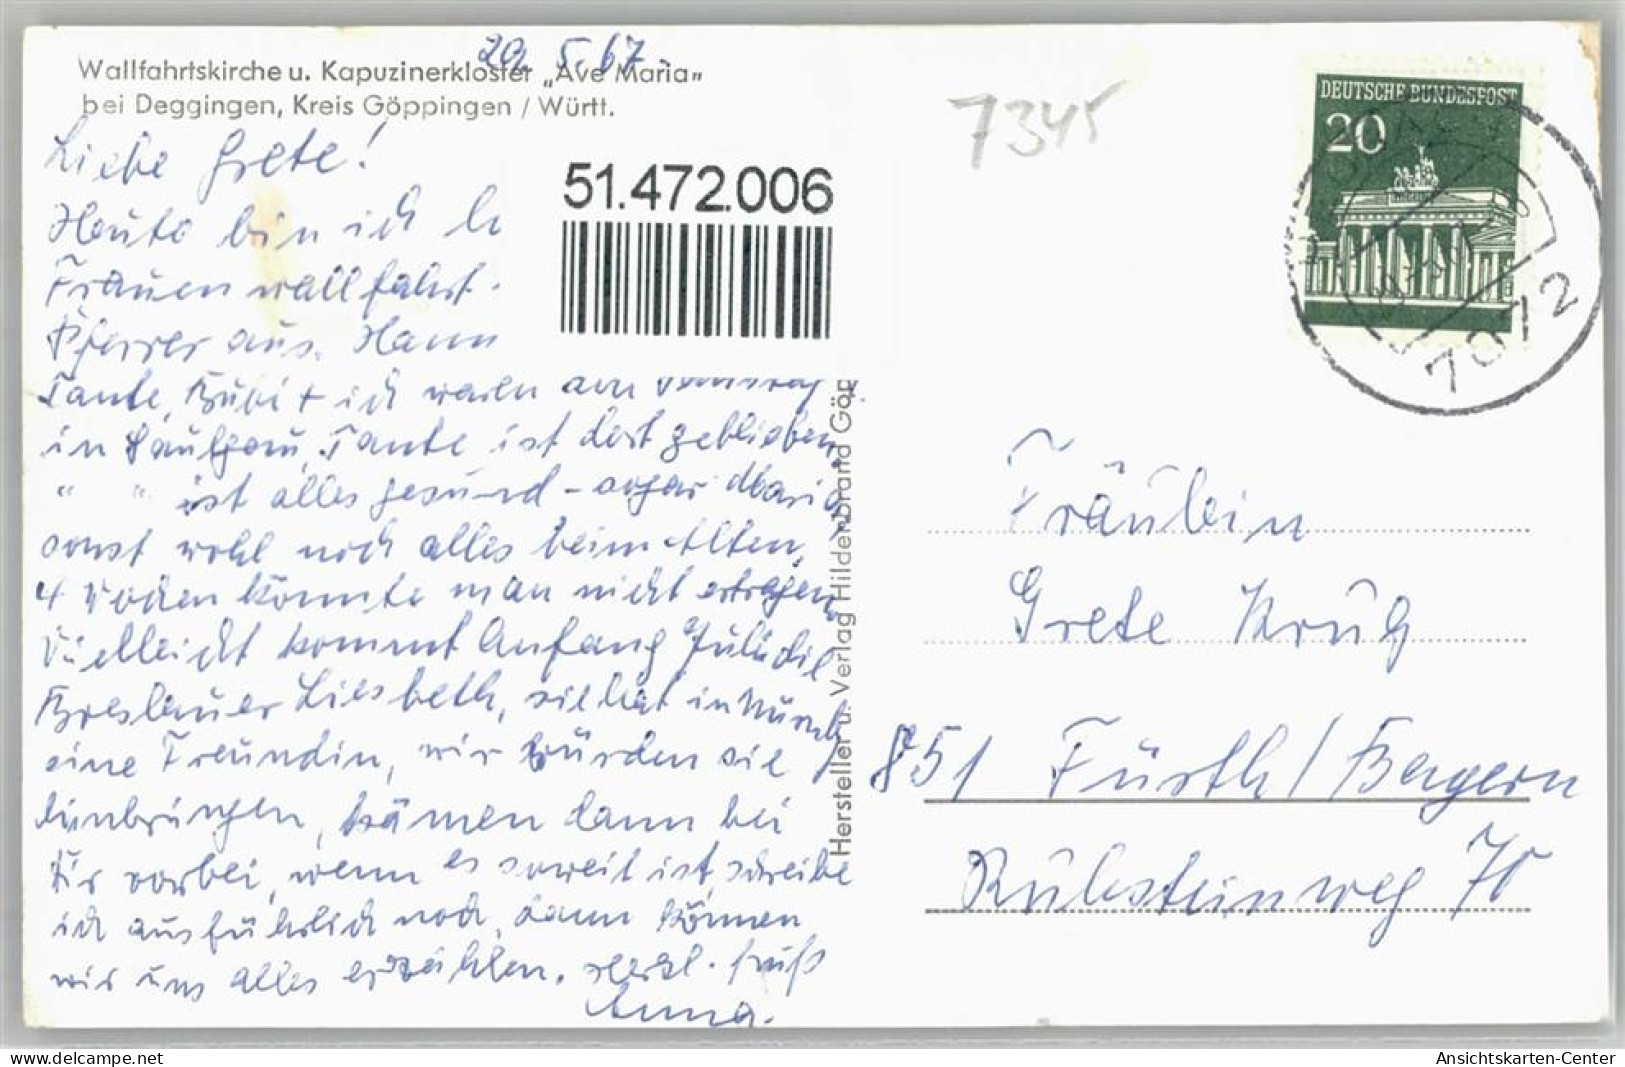 29. 5. 67.
Wallfahrtskirche u. Kapuzinerkloster „Ave Maria"
bei Deggingen, Kreis Göppingen / Württ.
7345
DEUTSCHE BUNDESPOST
20
7072
51.472.006
Liebe Grete!
Heute bin ich
Frauenwallfahrt.
Pfarrer aus.
Tante, Bubi + ich waren am
in Saulgau, Tante ist dort geblieben,
" " ist alles gesund - sogar Maria
sonst wohl noch alles beim Alten,
4 Wochen könnte man nicht ertragen,
Vielleicht kommt Anfang Juli die
Breslauer Liesbeth, sie hat in Nürnbg
eine Freundin, wir würden sie
hinbringen, kämen dann bei
Dir vorbei, wenn es soweit ist, schreibe
ich ausführlich noch, dann können
wir uns alles erzählen. Herzl. Gruß
Anna.
Hersteller u. Verlag Hildenbrand Göp
Fräulein
Grete Krug
851 Fürth / Bayern
Rühsteinweg 70
Ansichtskarten-Center
www.delcampe.net